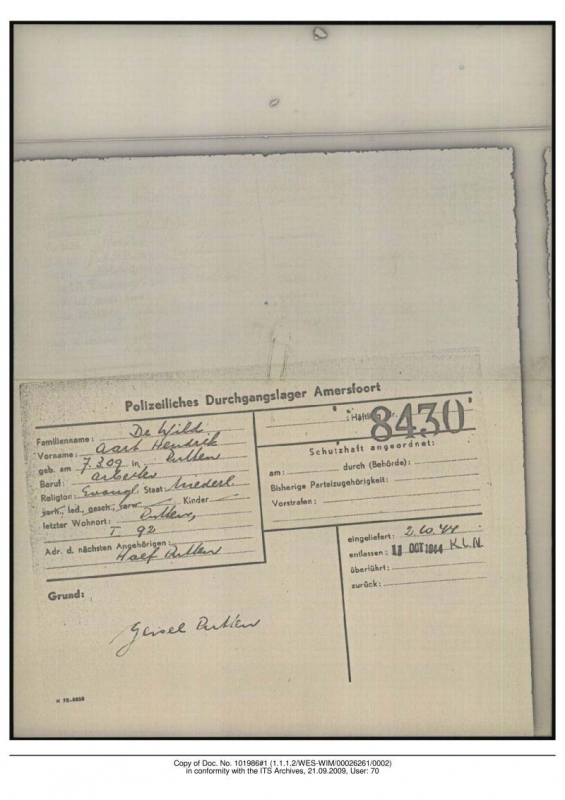 Polizeiliches Durchgangslager Amersfoort
Familienname: De Wild,
Vorname: Aart Hendrik
geb. am 7.3.09. in Putten
Beruf: arbeiter
Religion: Evangl Staat: Niederl.
verh., led., gesch., verw. — Kinder —
letzter Wohnort: Putten,
T. 92
Adr. d. nächsten Angehörigen:
Half Putten
Häftling Nr. 8430
Schutzhaft angeordnet:
am: durch (Behörde):
Bisherige Parteizugehörigkeit:
Vorstrafen:
eingeliefert: 2.10.44
entlassen: 11 OCT 1944 K.L.N.
überführt:
zurück:
Grund:
Geisel Putten
Copy of Doc. No. 101986#1 (1.1.1.2/WES-WIM/00026261/0002)
in conformity with the ITS Archives, 21.09.2009, User: 70